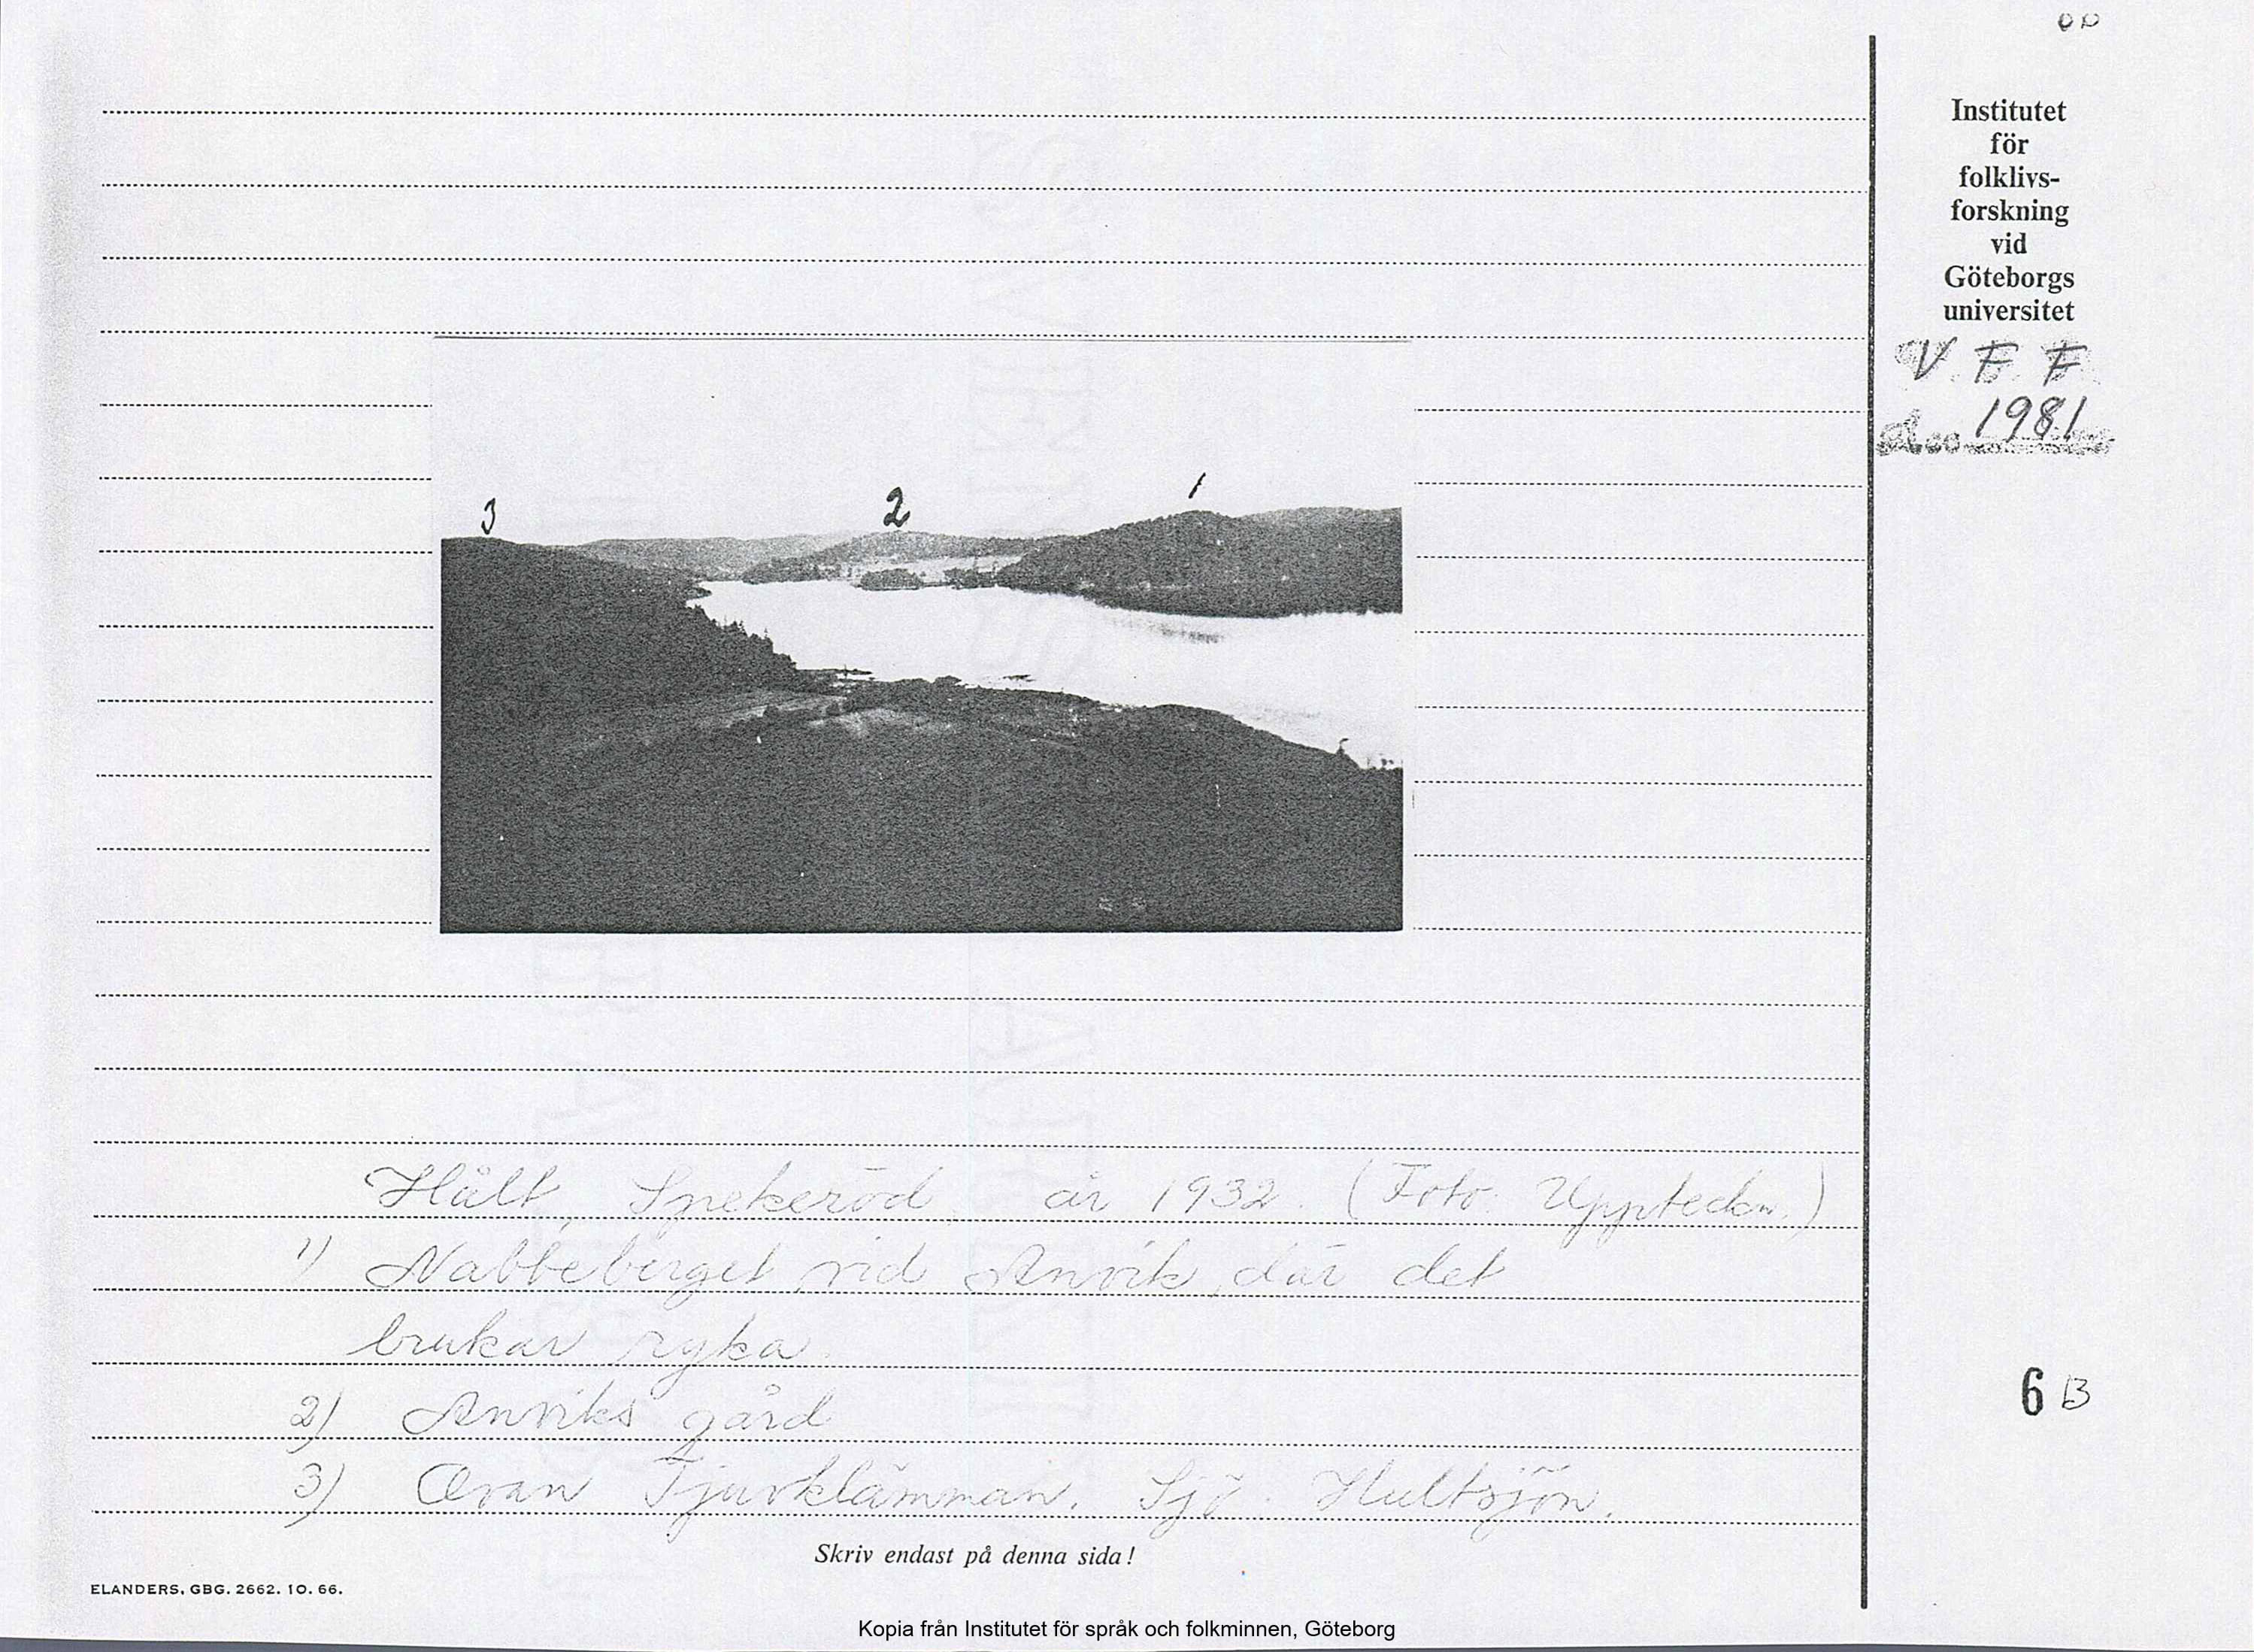 Institutet
för
folklivs-
forskning
vid
Göteborgs
universitet
V F F
1981
3 2 1
Hält, Spekeröd, år 1932. (Foto: Uppteckn.)
1) Nabbeberget vid Anvik, där det
brukar ryka.
2) Anviks gård
3) Ovan Tjuvklämman. Sjö: Hultsjön.
6 B
Skriv endast på denna sida!
ELANDERS, GBG. 2662. 10. 66.
Kopia från Institutet för språk och folkminnen, Göteborg